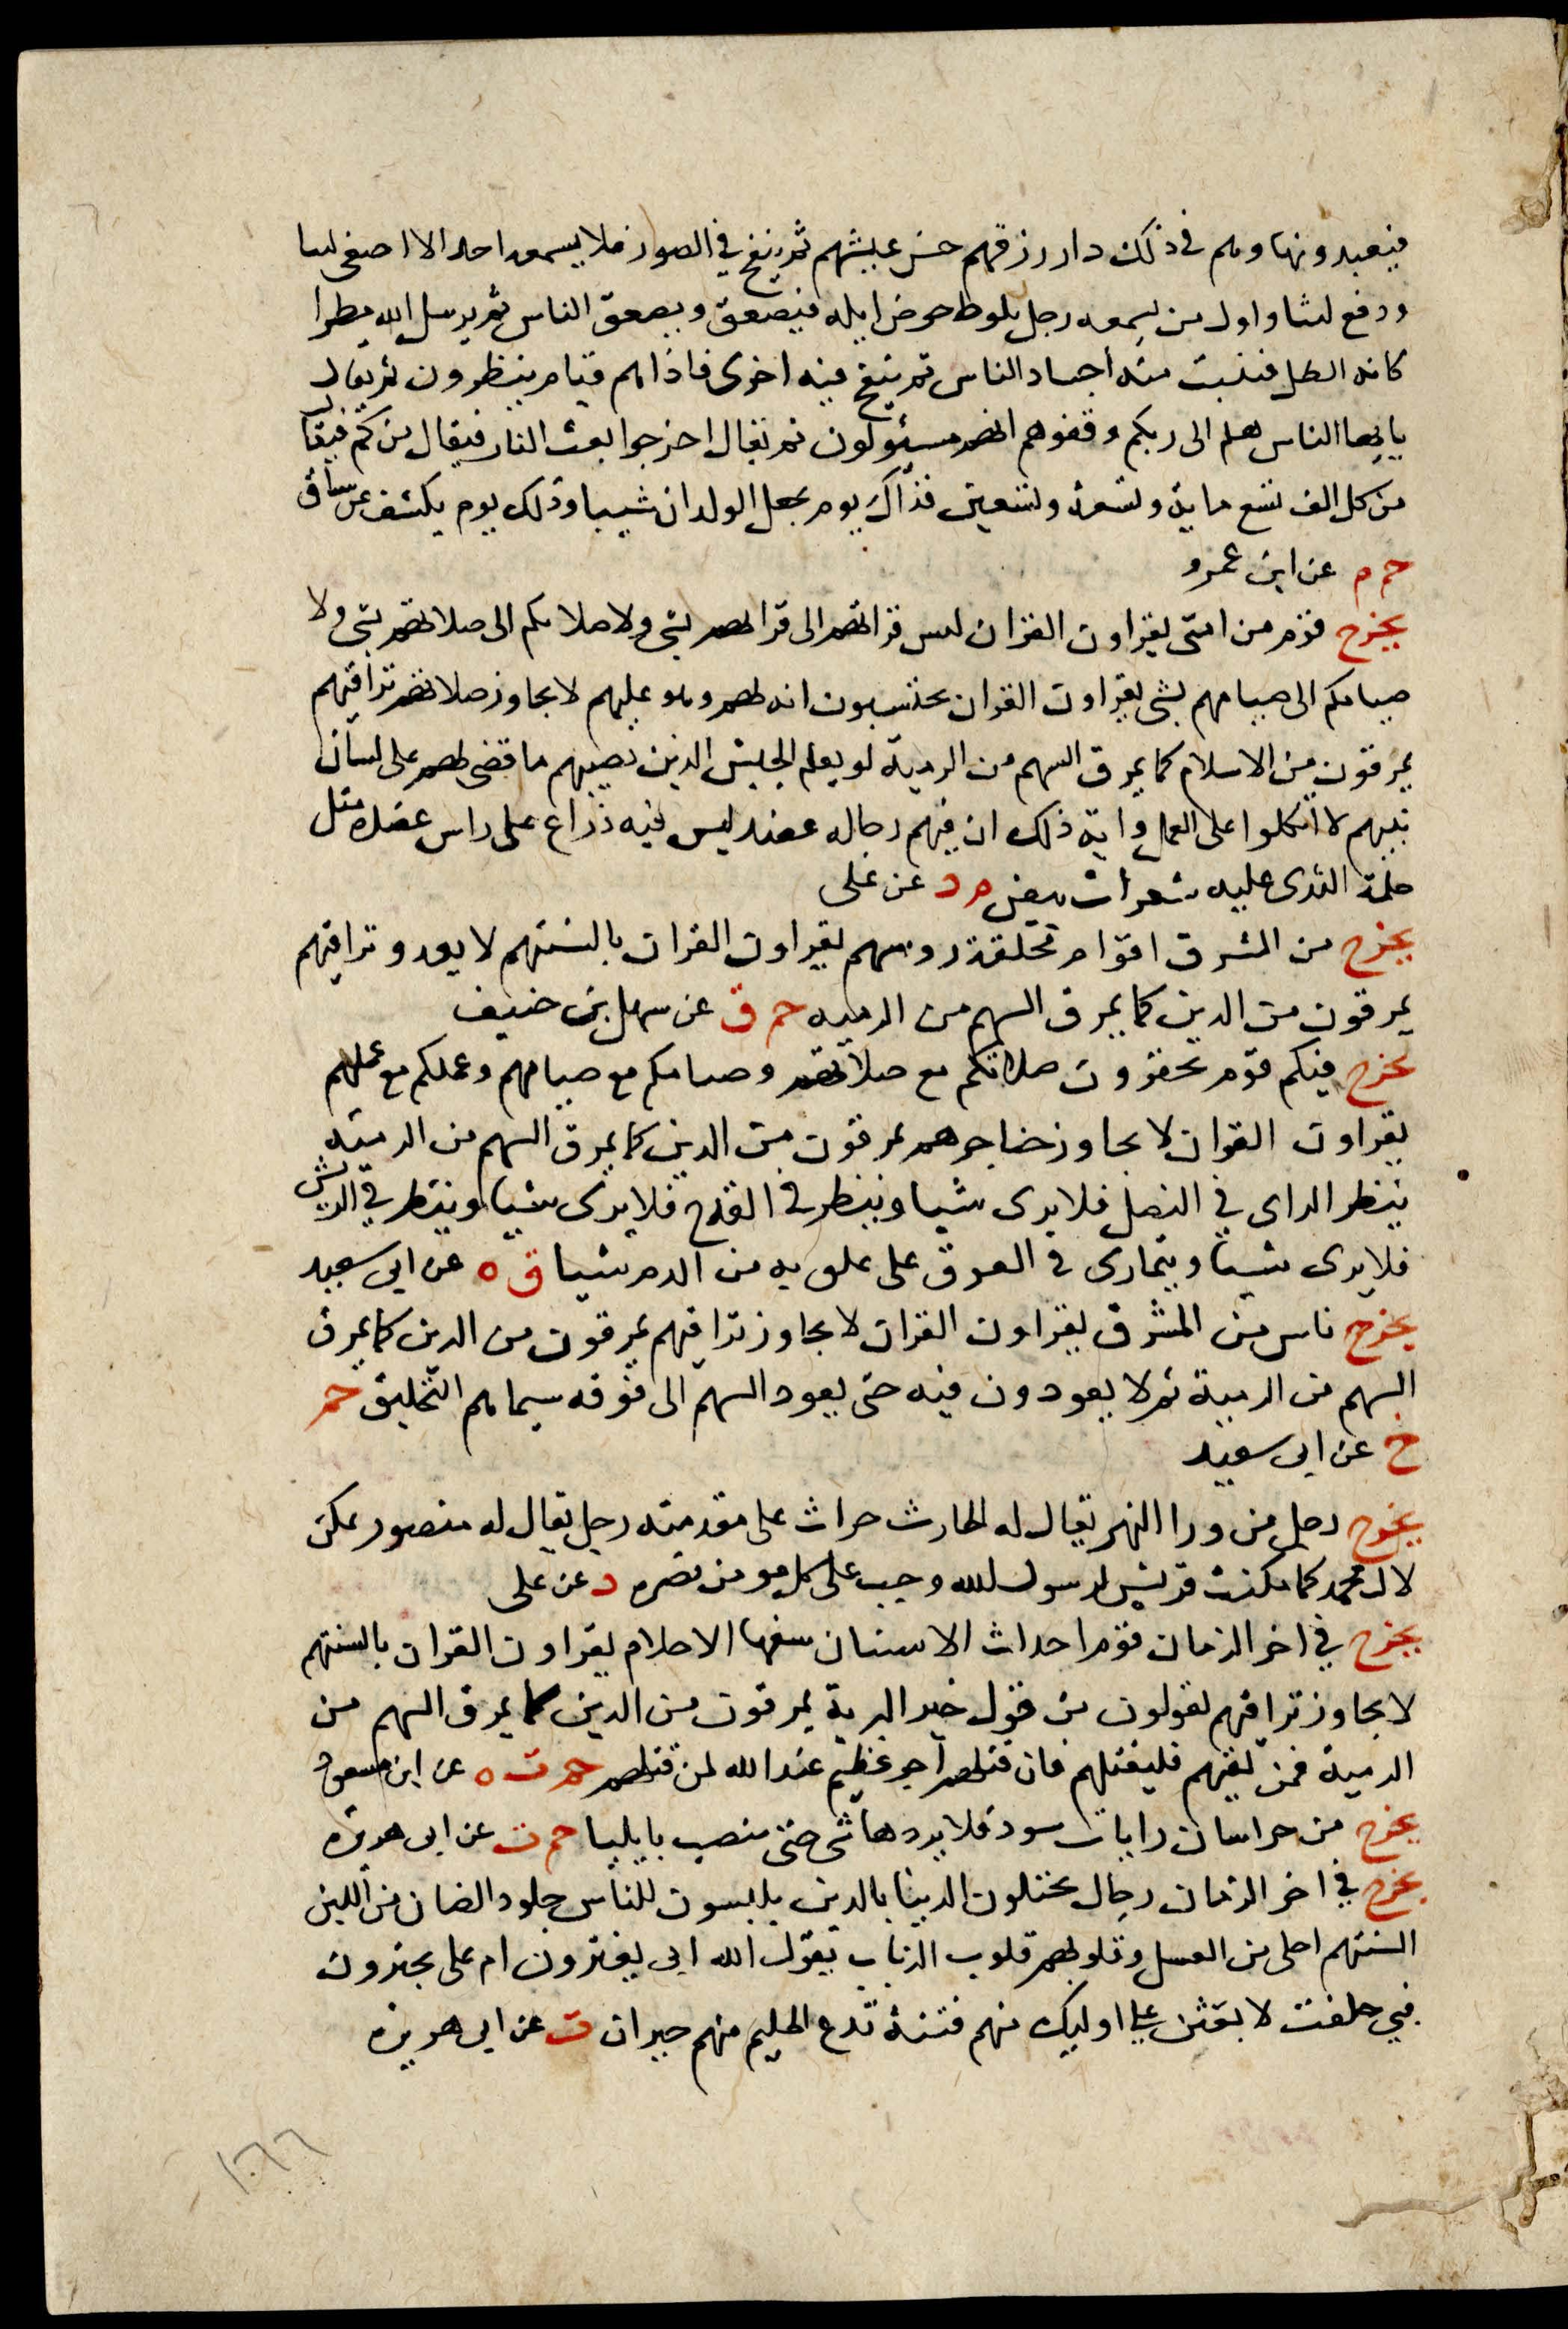 فيعبدونها وهم في ذلك دار رزقهم حسن عيشهم ثم ينفخ في الصور فلا يسمعه احد الا اصغى ليتا
ورفع ليتا واول من يسمعه رجل يلوط حوض ابله فيصعق ويصعق الناس ثم يرسل الله مطرا
كانه الطل فتنبت منه اجساد الناس ثم ينفخ فيه اخرى فاذا هم قيام ينظرون ثم يقال
يا ايها الناس هلم الى ربكم وقفوهم انهم مسئولون ثم يقال اخرجوا بعث النار فيقال من كم فيقال
من كل الف تسع ماية وتسعة وتسعين فذاك يوم يجعل الولدان شيبا وذلك يوم يكشف عن ساق
حم م عن ابن عمرو
يخرج قوم من امتى يقراون القران ليس قراتهم الى قراتهم بشى ولا صلاتكم الى صلاتهم بشى ولا
صيامكم الى صيامهم بشى يقراون القران يحتسبون انه لهم وهو عليهم لا يجاوز صلاتهم تراقيهم
يمرقون من الاسلام كما يمرق السهم من الرمية لو يعلم الجيش الذين يصيبهم ما قضى لهم على لسان
نبيهم لا اتكلوا على العمل واية ذلك ان فيهم رجاله عضد ليس فيه ذراع على راس عضده مثل
حلمة الثدى عليه شعرات بيض م د عن على
يخرج من المشرق اقوام محلقة روسهم يقراون القران بالسنتهم لا يعدو تراقيهم
يمرقون من الدين كما يمرق السهم من الرميه حم ق عن سهل بن حنيف
يخرج فيكم قوم تحقرون صلاتكم مع صلاتهم وصيامكم مع صيامهم وعملكم مع عملهم
يقراون القران لا يجاوز حناجرهم يمرقون من الدين كما يمرق السهم من الرميه
ينظر الراى في النصل فلا يرى شيا وينظر في القدح فلا يرى شيا وينظر في الريش
فلا يرى شيا ويتمارى في الفوق على علق به من الدم شيا ق ه عن ابى سعيد
يخرج ناس من المشرق يقراون القران لا يجاوز تراقيهم يمرقون من الدين كما يمرق
السهم من الرمية ثم لا يعودون فيه حتى يعود السهم الى فوقه سيماهم التحليق حم
خ عن ابى سعيد
يخرج رجل من ورا النهر يقال له الحارث حراث على مقدمته رجل يقال له منصور يمكن
لال محمد كما مكنت قريش لرسول الله وجب على كل مومن نصره د عن على
يخرج في اخر الزمان قوم احداث الاسنان سفها الاحلام يقراون القران بالسنتهم
لا يجاوز تراقيهم يقولون من قول خير البرية يمرقون من الدين كما يمرق السهم من
الرمية فمن لقيهم فليقتلهم فان قتلهم اجر عظيم عند الله لمن قتلهم حم ت ه عن ابن مسعود
يخرج من خراسان رايات سود فلا يردها شى حتى تنصب بايليا حم ت عن ابى هريره
يخرج في اخر الزمان رجال يختلون الدنيا بالدين يلبسون للناس جلود الضان من اللين
السنتهم احلى من العسل وقلوبهم قلوب الذياب يقول الله ابى يغترون ام على يجترون
فبي حلفت لابعثن على اوليك منهم فتنة تدع الحليم منهم حيران ت عن ابى هريره
١٠٦٦